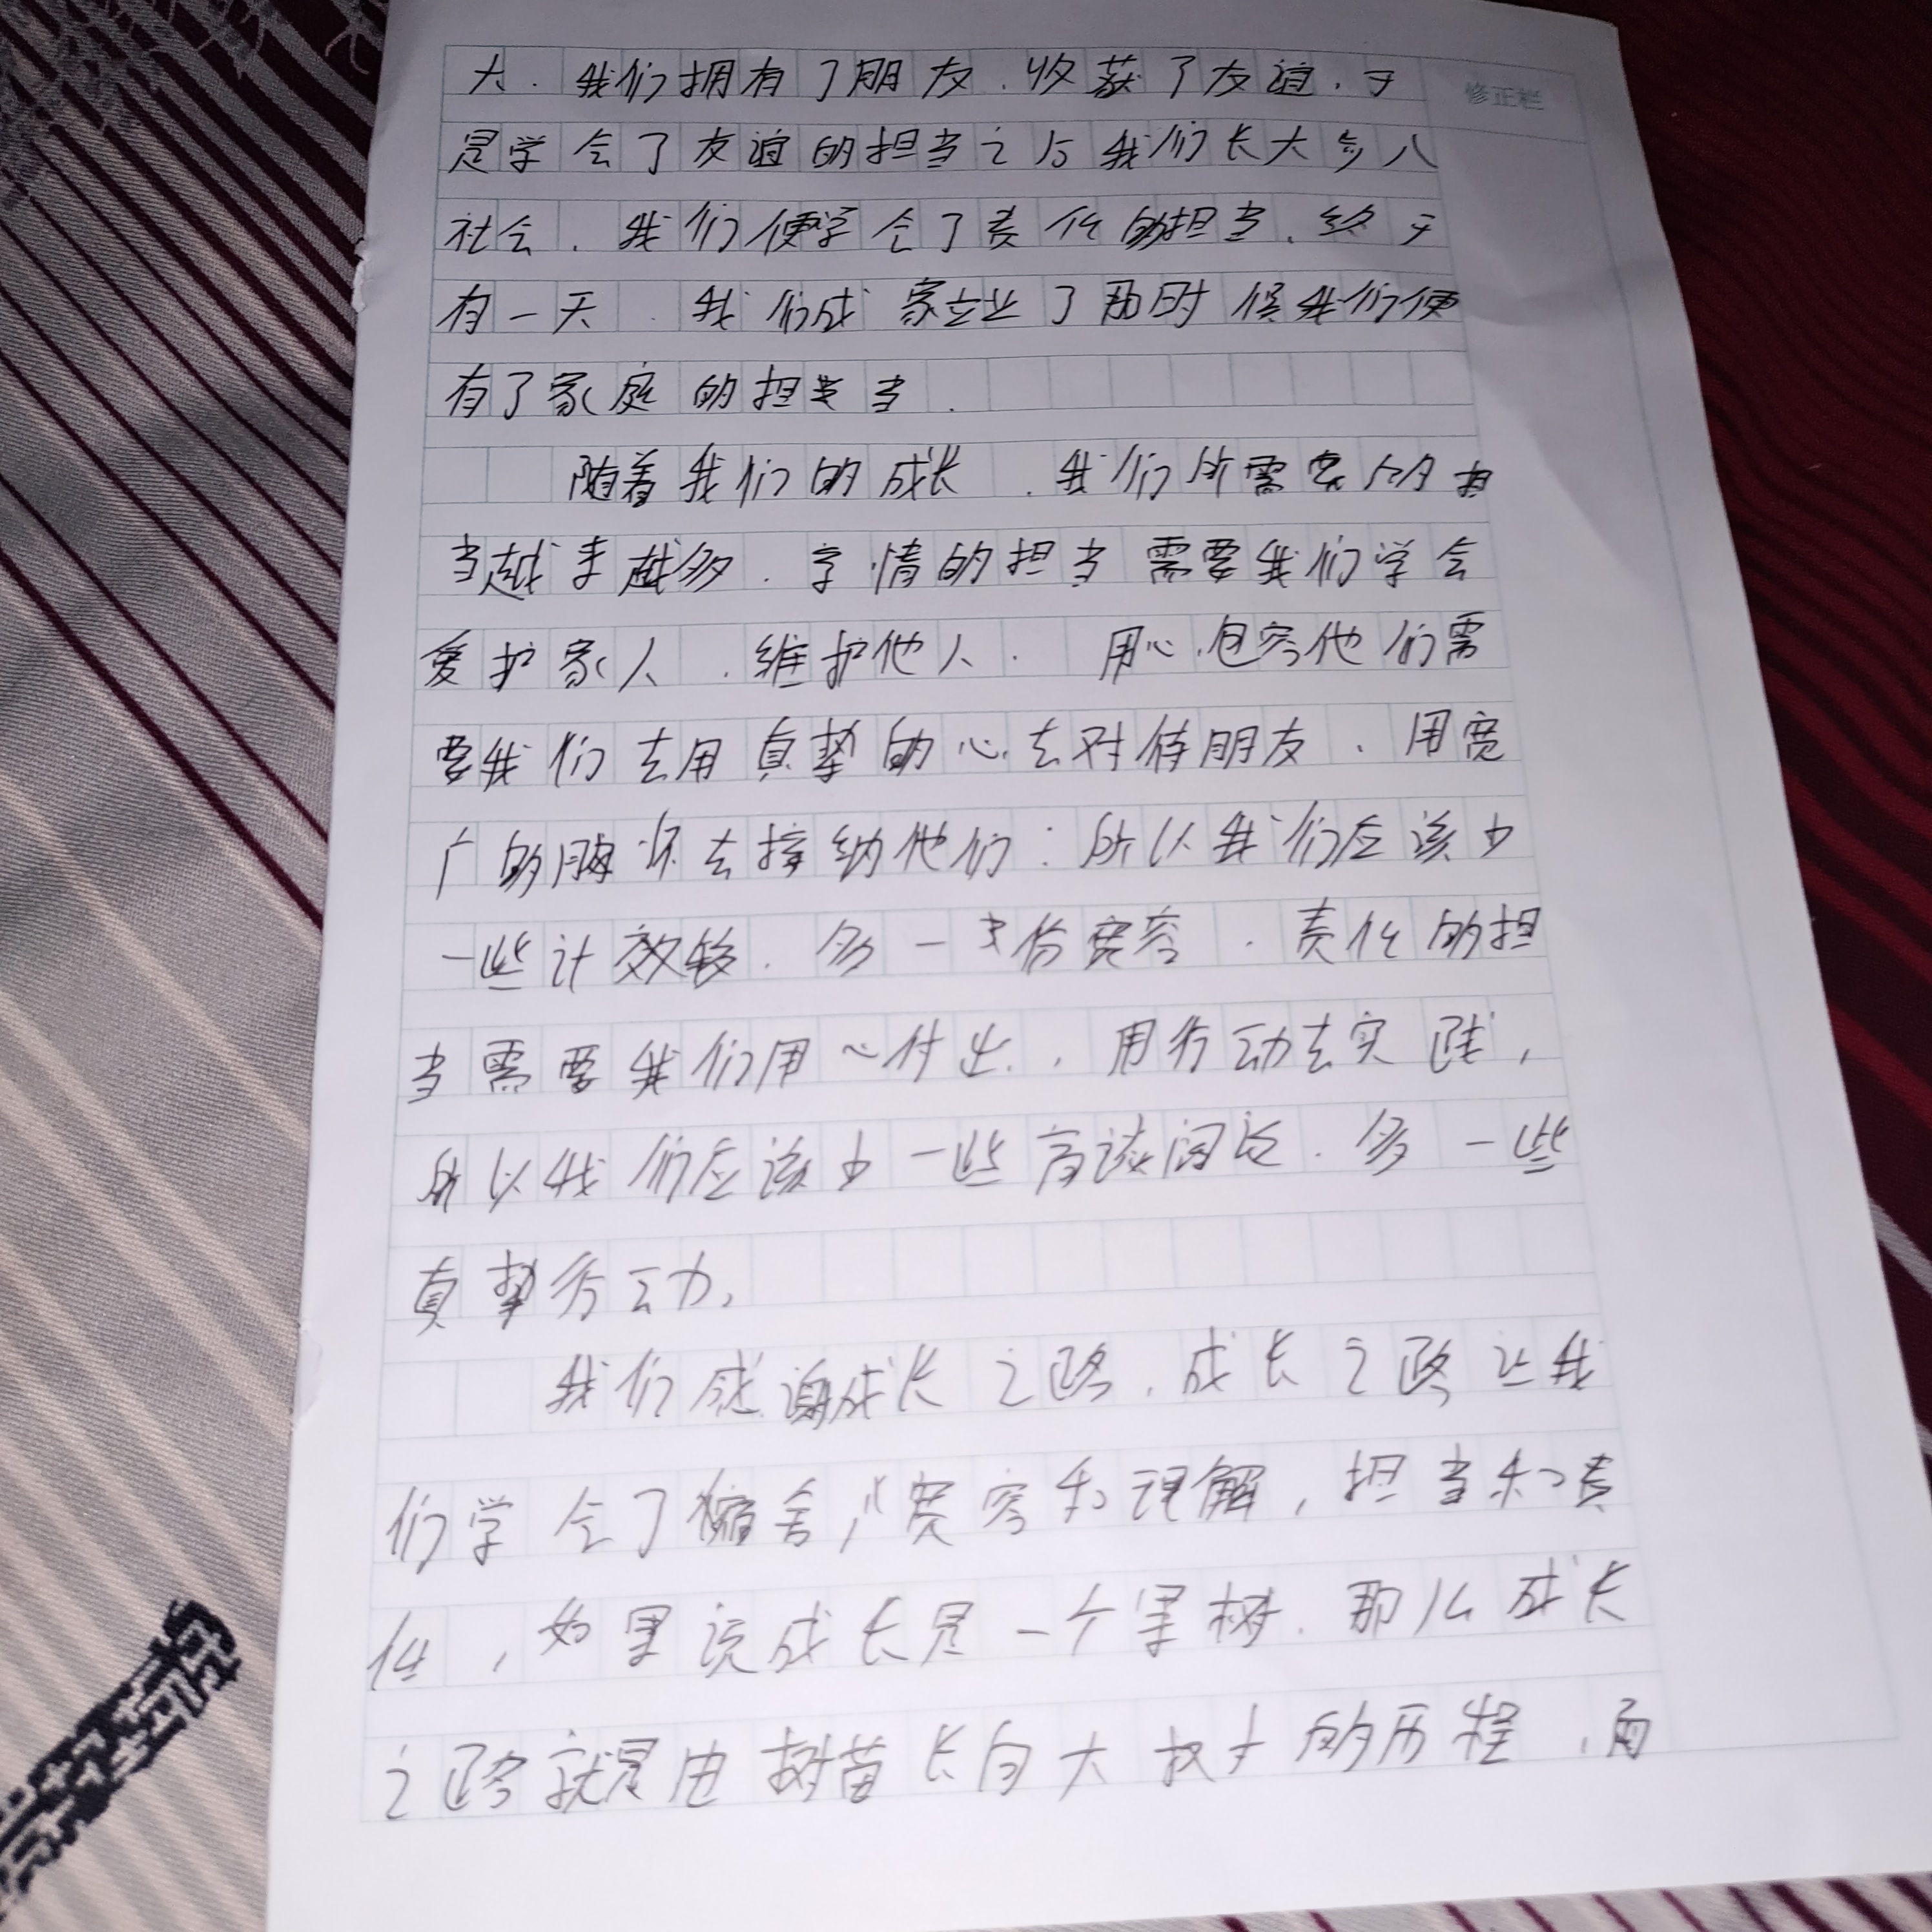 大.我们拥有了朋友.收获了友谊.于
修正栏
是学会了友谊的担当之后我们长大步入
社会.我们便学会了责任的担当.终于
有一天.我们成家立业了那时候我们便
有了家庭的担当.
随着我们的成长.我们所需要的担
当越来越多.亲情的担当需要我们学会
爱护家人.维护他人.用心包容他们需
要我们去用真挚的心去对待朋友.用宽
广的胸怀去接纳他们:所以我们应该少
一些计较.多一份宽容.责任的担
当需要我们用心付出.用行动去实践,
所以我们应该少一些高谈阔论.多一些
真挚行动,
我们感谢成长之路.成长之路让我
们学会了宽容和理解,担当和责
任,如果说成长是一个果树.那么成长
之路就是由树苗长向大树的历程.而